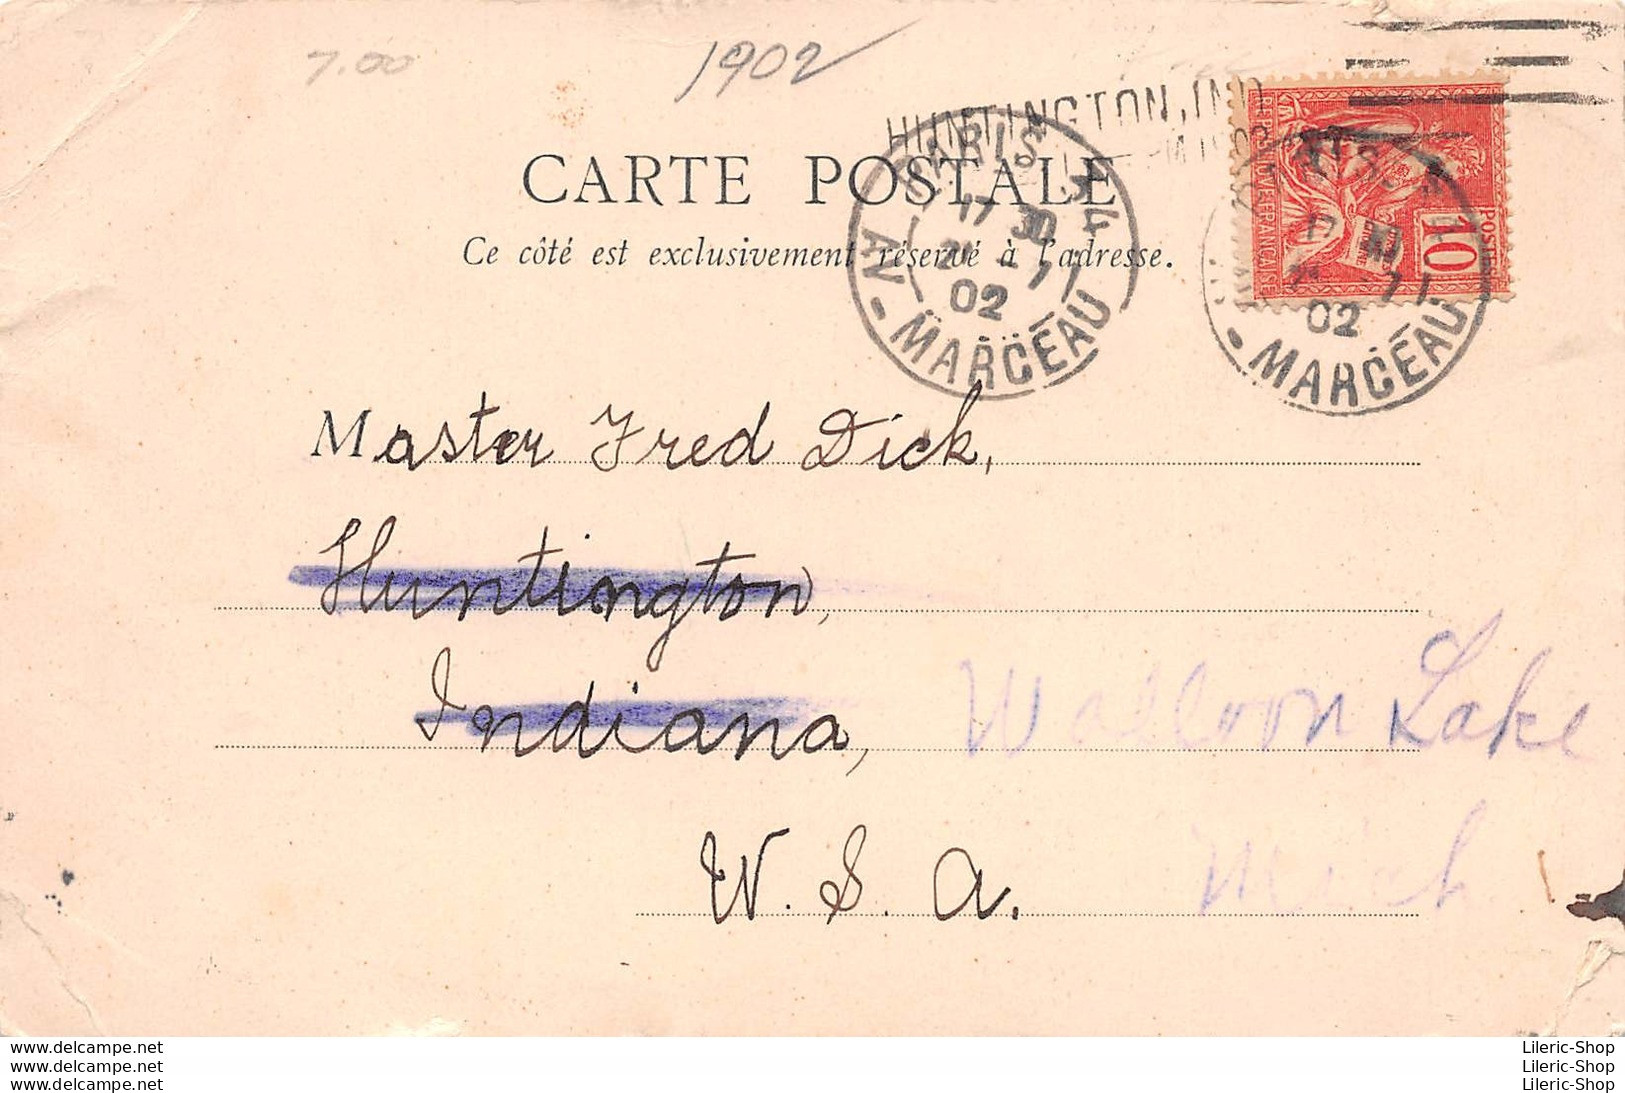 7.00
1902
HUNTINGTON, IND
CARTE POSTALE
Ce côté est exclusivement réservé à l'adresse.
PARIS 34
17 30
21 -7
02
AV - MARCEAU
REPUBLIQUE FRANÇAISE
POSTES
10
17 30
-7
02
- MARCEAU
Master Fred Dick,
Huntington,
Indiana,
Walloon Lake
U. S. A.
Mich
www.delcampe.net
www.delcampe.net
www.delcampe.net
Lileric-Shop
Lileric-Shop
Lileric-Shop